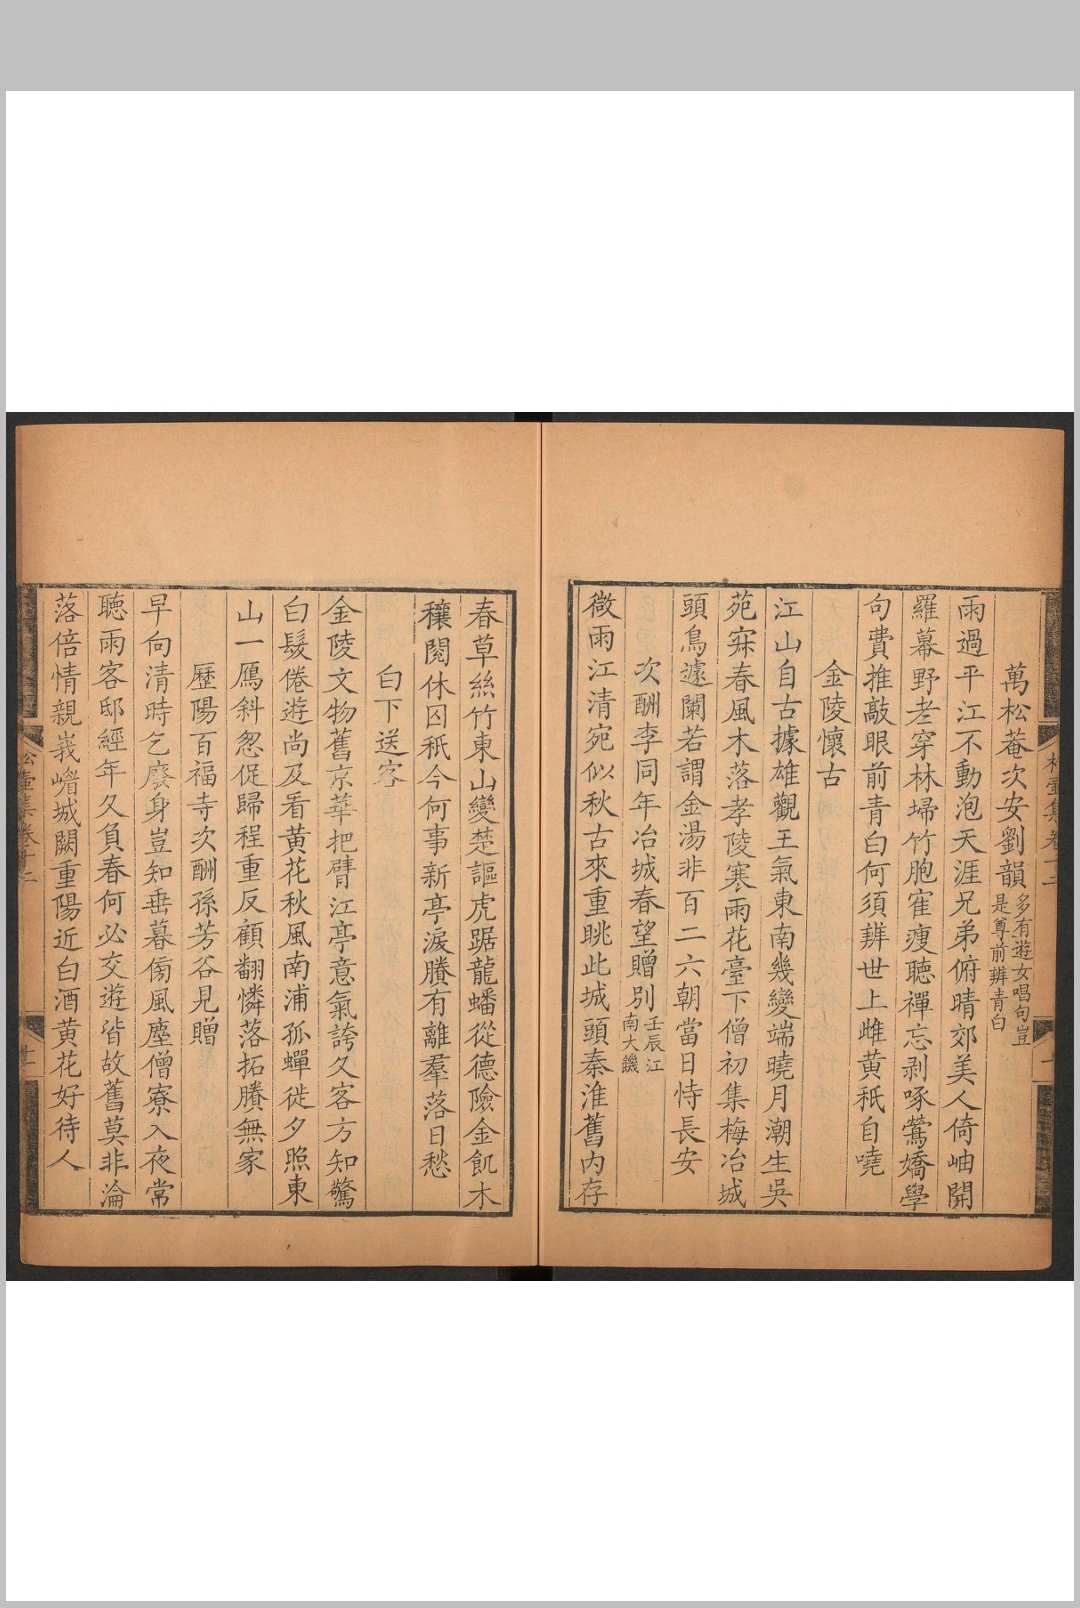 萬松菴次安劉韻多有遊女唱句豈是尊前辨青白
雨過平江不動泡天涯兄弟俯晴郊美人倚岫開
羅幕野老穿林埽竹胞寉瘦聽禪忘剥啄鶯嬌學
句費推敲眼前青白何須辨世上雌黄秖自嘵
金陵懷古
江山自古據雄觀王氣東南幾變端曉月潮生吳
苑寀春風木落孝陵寒雨花臺下僧初集梅冶城
頭鳥遽闌若謂金湯非百二六朝當日恃長安
次酬李同年冶城春望贈别壬辰江南大饑
微雨江清宛似秋古來重眺此城頭秦淮舊内存
春草絲竹東山變楚謳虎踞龍蟠從德險金飢木
穰閱休囚秖今何事新亭淚賸有離羣落日愁
白下送客
金陵文物舊京華把臂江亭意氣誇久客方知驚
白髮倦遊尚及看黄花秋風南浦孤蟬徙夕照東
山一鴈斜怱促歸程重反顧翻憐落拓賸無家
歷陽百福寺次酬孫芳谷見贈
早向清時乞廢身豈知垂暮傍風塵僧寮入夜常
聽雨客邸經年久負春何必交遊皆故舊莫非淪
落倍情親峩嶒城闕重陽近白酒黄花好待人
松壺集卷十二